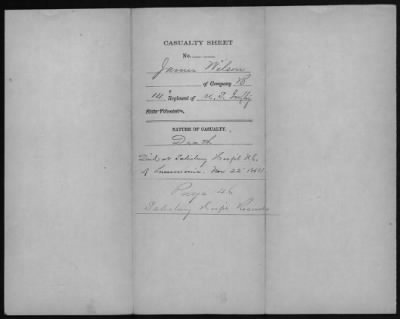 CASUALTY SHEET
No.
James Wilson
of Company B
14" Regiment of U.S. Infty
State Volunteers,
NATURE OF CASUALTY.
Death
Died at Salisbury Hospl N.C.
of Pneumonia. Nov 22" 1864.
Page 46
Salisbury Hospl Records